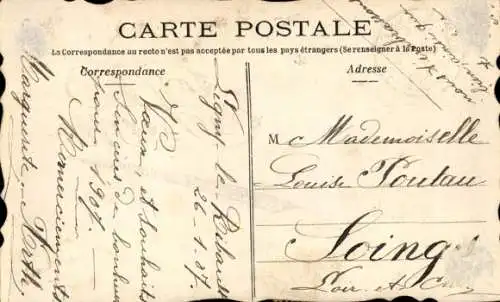 CARTE POSTALE
La Correspondance au recto n'est pas acceptée par tous les pays étrangers (Se renseigner à la Poste)
Correspondance
Adresse
Ligny le Ribault
26-1-07.
Vœux et souhaits
Sincères de bonheur
pour 1907.
Remerciements
Marguerite
M Mademoiselle
Louise Toulau
Soing
Loir et Cher